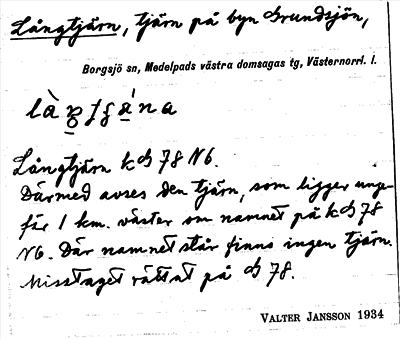 Långtjärn, tjärn på byn Grundsjön,
Borgsjö sn, Medelpads västra domsagas tg, Västernorrl. l.
Långtjärn k ch 78 N6.
Därmed avses den tjärn, som ligger unge-
fär 1 km. väster om namnet på k ch 78
N6. Där namnet står finns ingen tjärn.
Misstaget rättat på ch 78.
VALTER JANSSON 1934